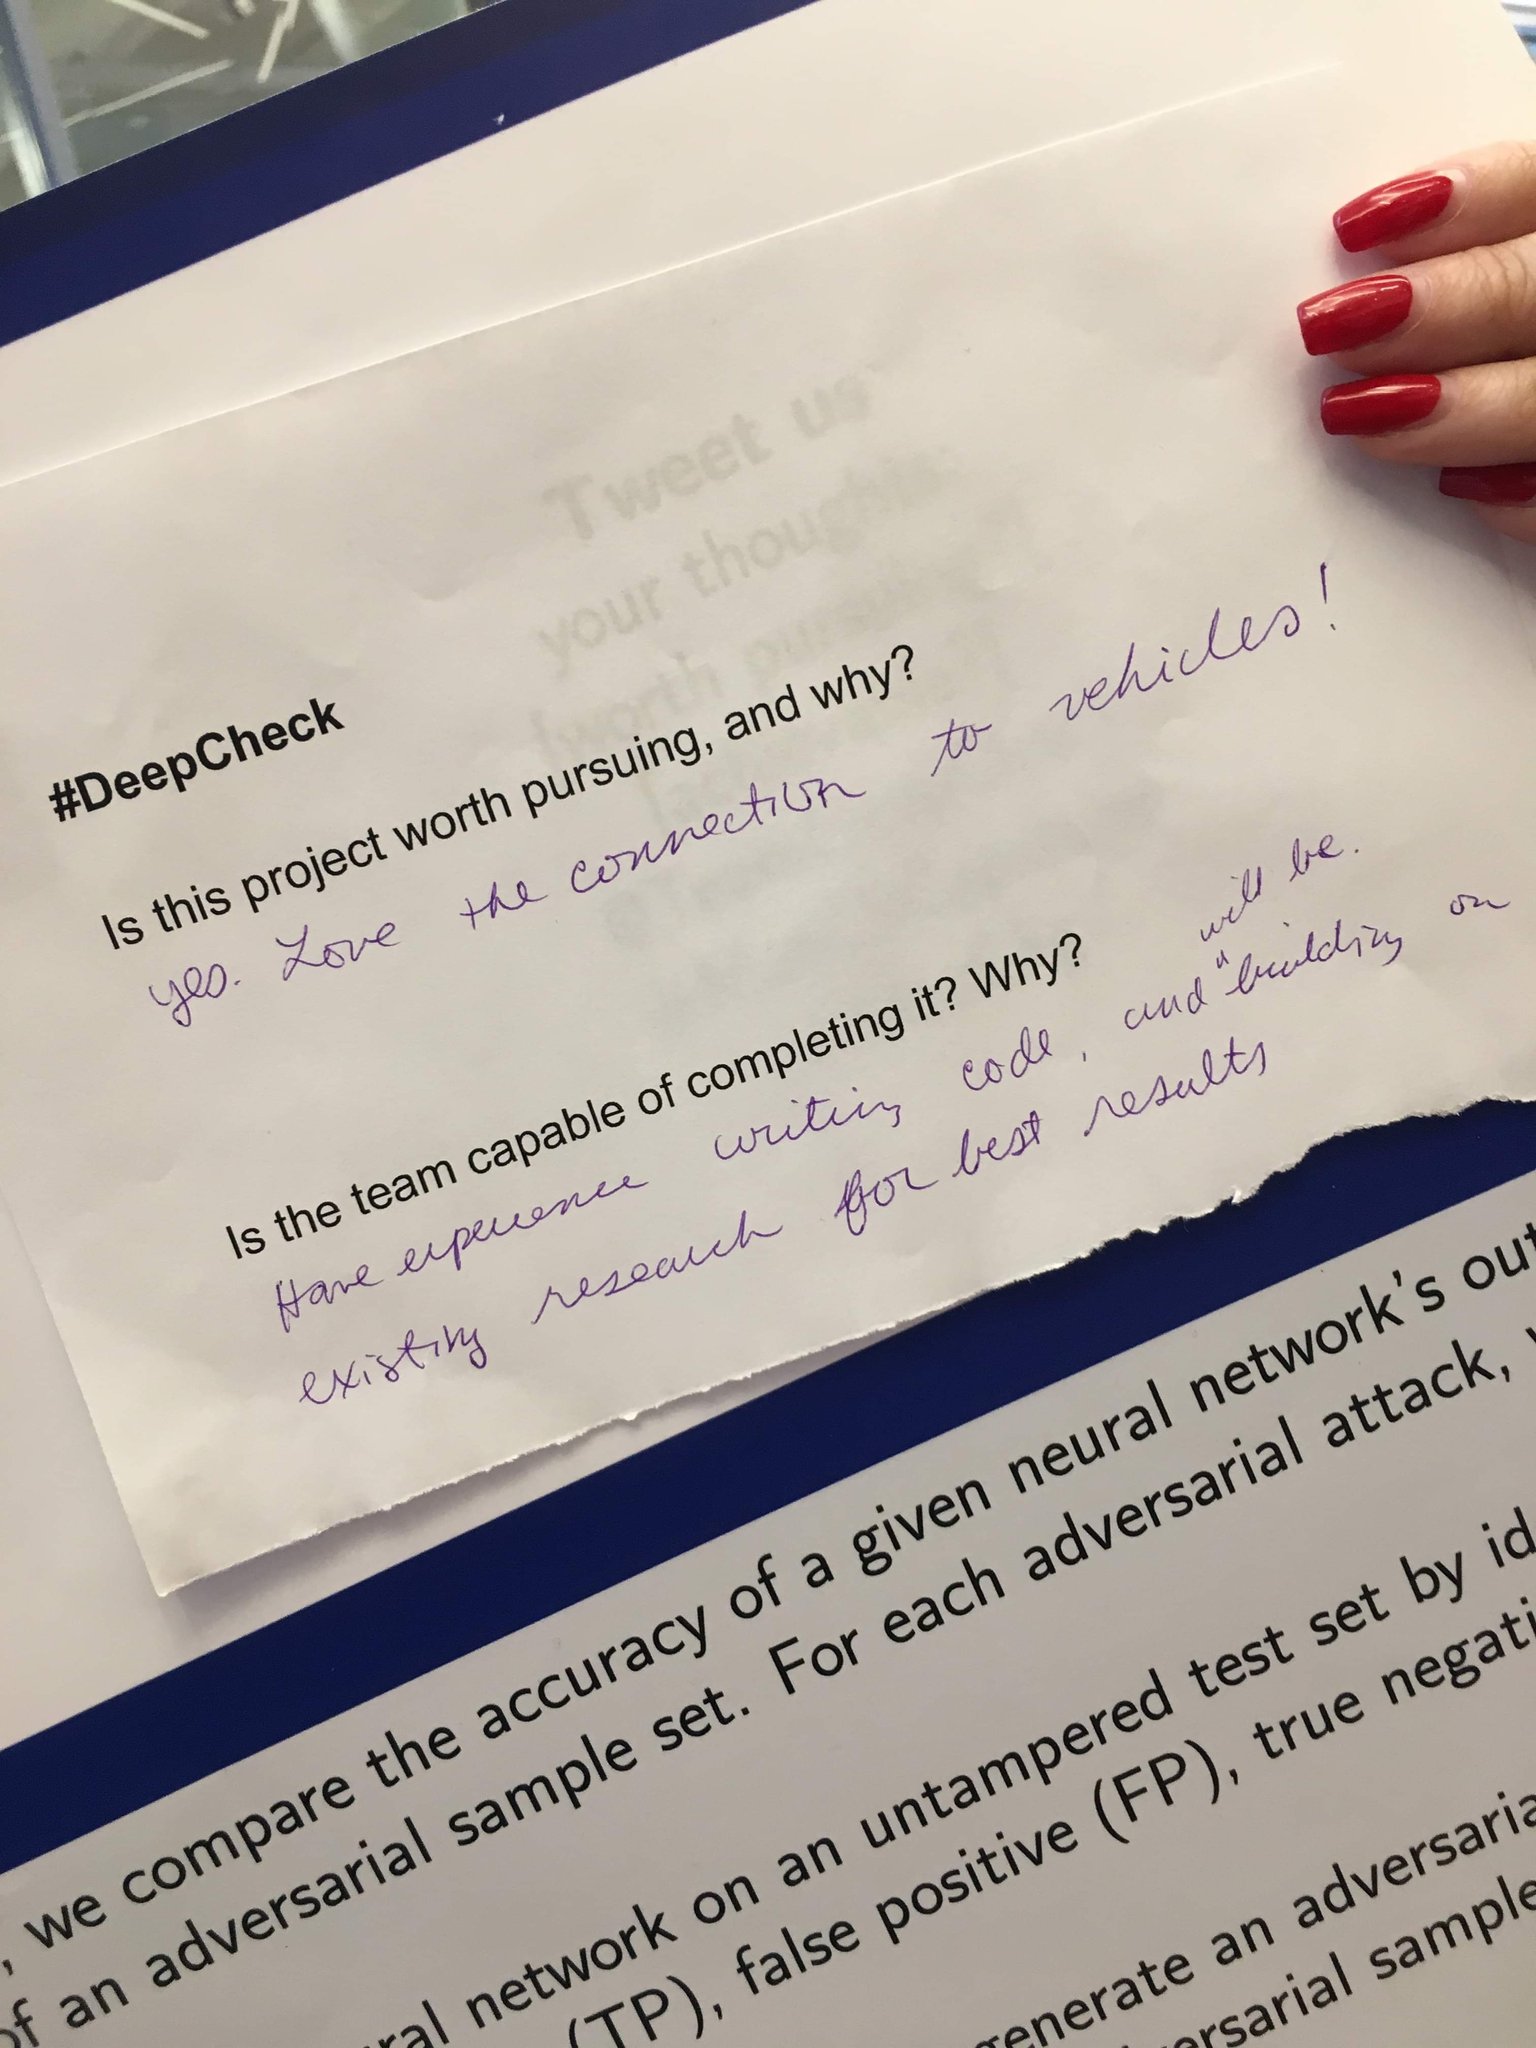 Tweet us
your thoughts:
#DeepCheck
Is this project worth pursuing, and why?
yes. Love the connection to vehicles!
Is the team capable of completing it? Why?
will be.
Have experience writing code, and "building on
existing research for best results
, we compare the accuracy of a given neural network's out
of an adversarial sample set. For each adversarial attack,
ral network on an untampered test set by id
(TP), false positive (FP), true negati
generate an adversaria
versarial sample